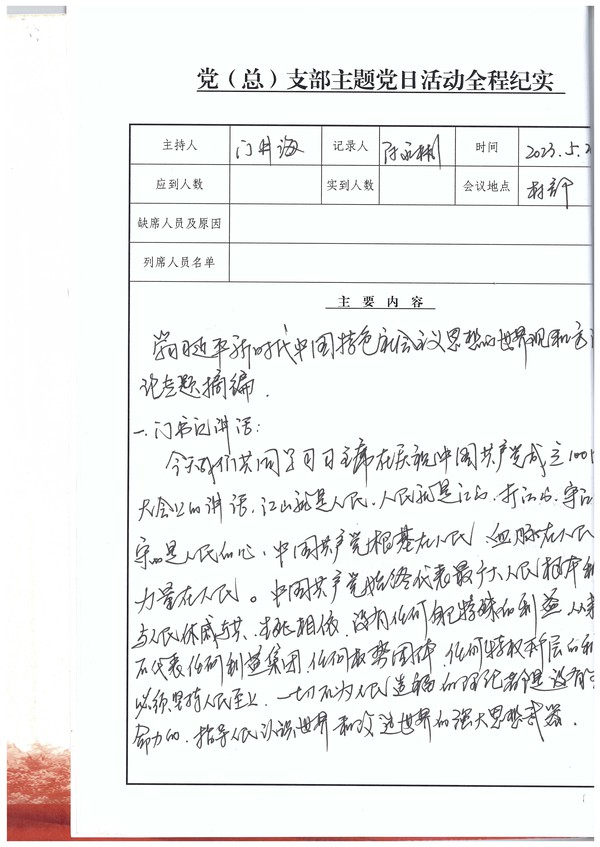 党（总）支部主题党日活动全程纪实
主持人 门书海 记录人 时间 2023.5.2
应到人数 实到人数 会议地点 村部
缺席人员及原因
列席人员名单
主 要 内 容
学习近平新时代中国特色社会主义思想的世界观和方
论专题摘编.
一.门书记讲话:
今天我们共同学习习主席在庆祝中国共产党成立100
大会上的讲话,江山就是人民,人民就是江山,打江山,守江
守的是人民的心,中国共产党根基在人民 血脉在人民
力量在人民。中国共产党始终代表最广大人民根本利
与人民休戚与共、生死相依,没有任何自己特殊的利益,从来
不代表任何利益集团,任何权势团体,任何特权阶层的利
必须坚持人民至上,一切不为人民造福的理论都是没有生
命力的,指导人民认识世界和改造世界的强大思想武器.